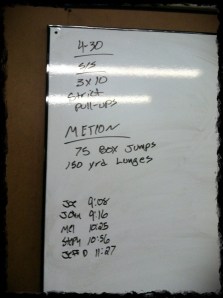 4-30
S/S
3x10
Strict
Pull-ups
METCON
75 Box Jumps
150 yrd Lunges
Joe 9:08
John 9:16
Mel 10:25
Steph 10:56
Jeff D 11:27